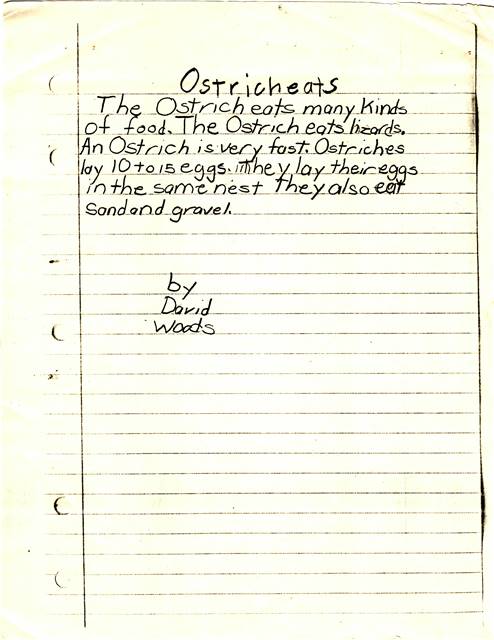 Ostrich eats
The Ostrich eats many kinds
of food. The Ostrich eats lizards.
An Ostrich is very fast. Ostriches
lay 10 to 15 eggs. They lay their eggs
in the same nest They also eat
sand and gravel.
by
David
Woods